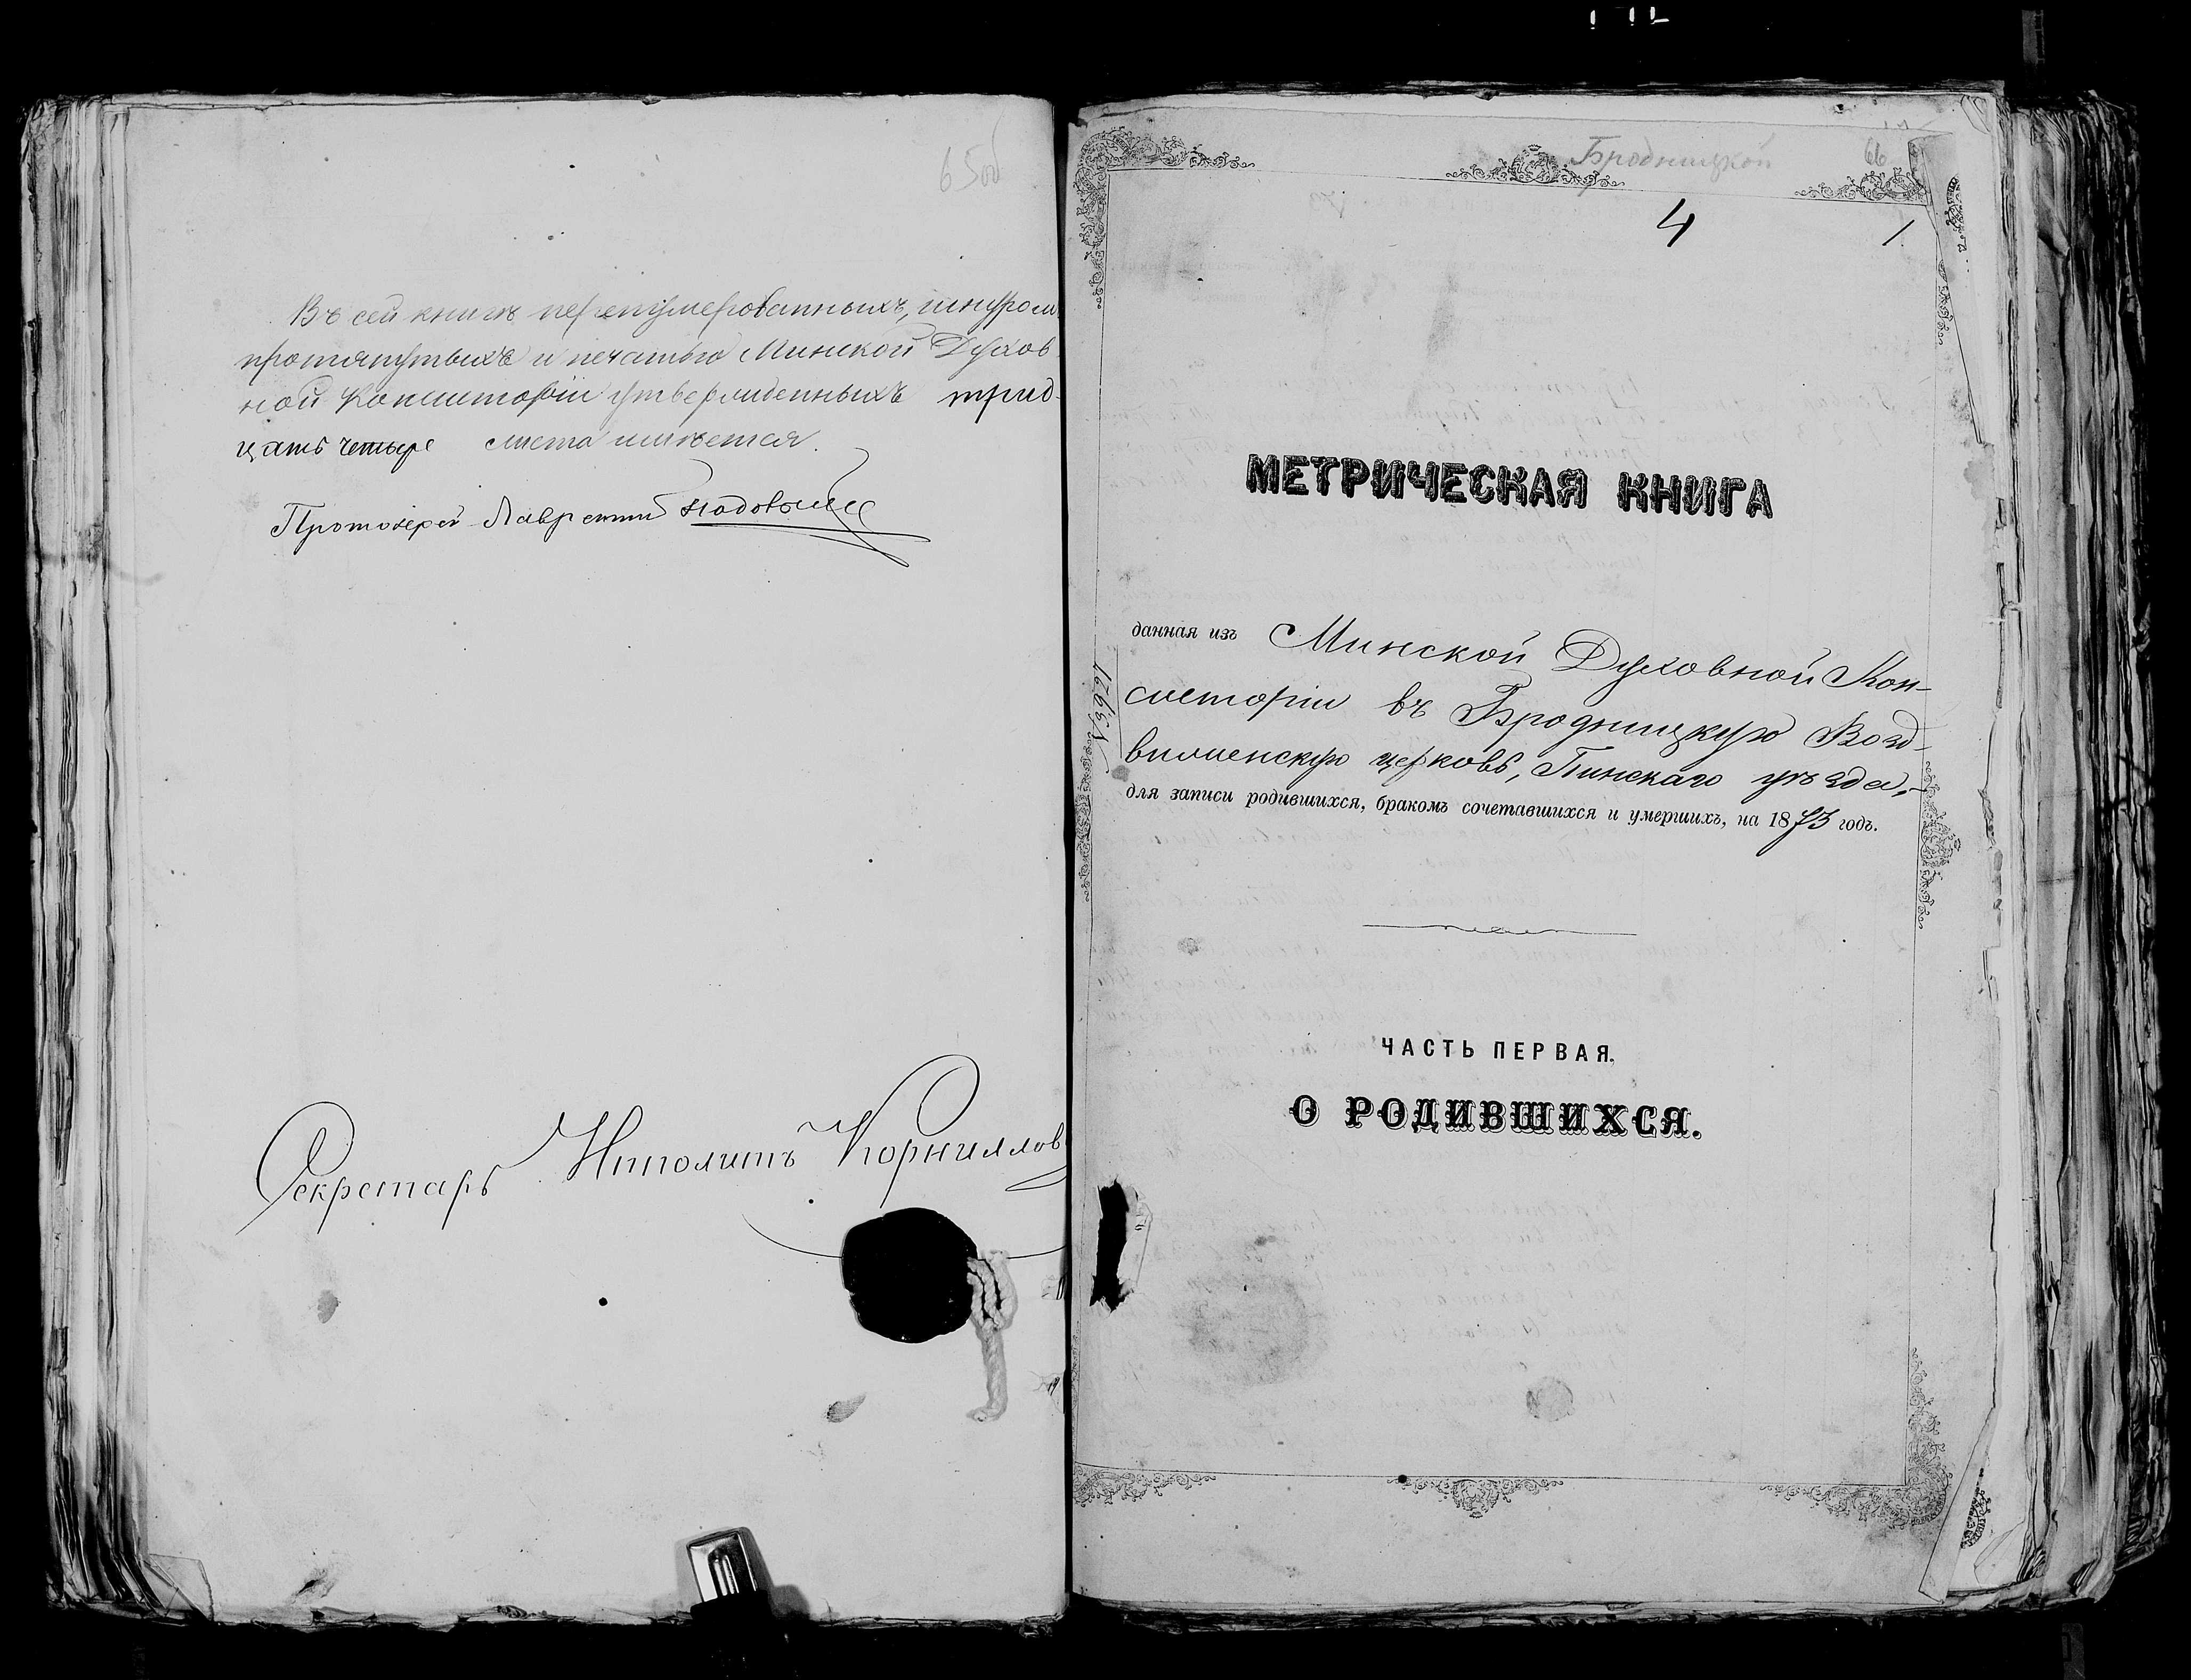 65об
Въ сей книгѣ перенумерованныхъ, шнуром
протянутыхъ и печатью Минской Духов
ной Консисторіи утвержденныхъ трид-
цать четыре листа имѣется.
Протоіерей Лаврентій
Секретарь Ипполитъ Корниллов
Бродницкой
66
4
1.
МЕТРИЧЕСКАЯ КНИГА
данная изъ Минской Духовной Кон-
систоріи въ Бродницкую Возд-
виженскую церковь, Пинскаго уѣзда,-
для записи родившихся, бракомъ сочетавшихся и умершихъ, на 1873 годъ.
ЧАСТЬ ПЕРВАЯ.
О РОДИВШИХСЯ.